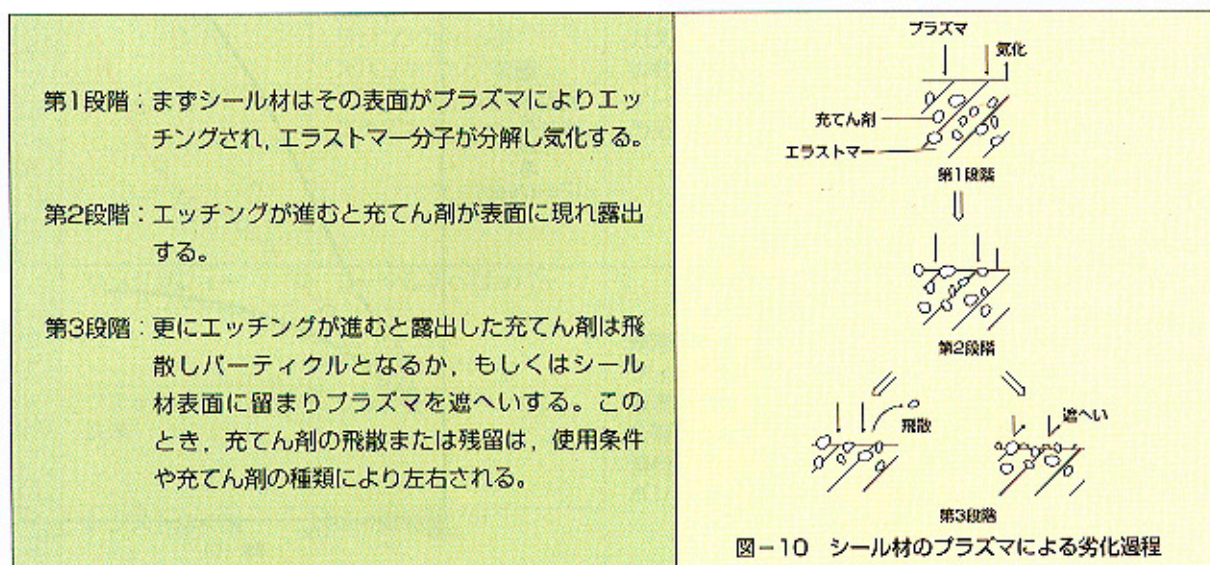 第1段階：まずシール材はその表面がプラズマによりエッ
チングされ，エラストマー分子が分解し気化する。
第2段階：エッチングが進むと充てん剤が表面に現れ露出
する。
第3段階：更にエッチングが進むと露出した充てん剤は飛
散しパーティクルとなるか，もしくはシール
材表面に留まりプラズマを遮へいする。この
とき，充てん剤の飛散または残留は，使用条件
や充てん剤の種類により左右される。
プラズマ
気化
充てん剤
エラストマー
第1段階
第2段階
飛散
遮へい
第3段階
図－10　シール材のプラズマによる劣化過程